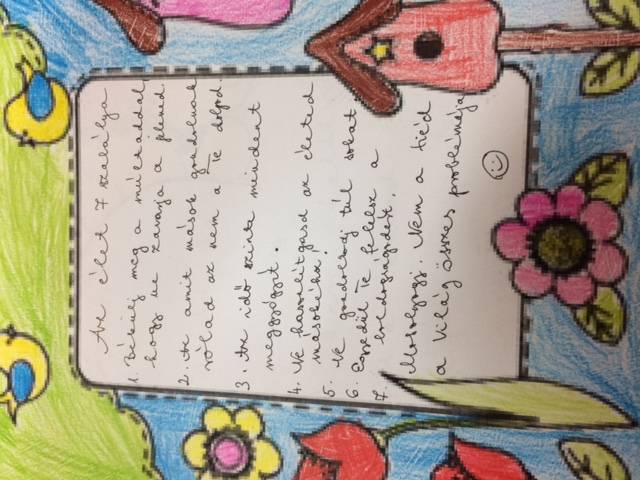 Az élet 7 szabálya
1. Békülj meg a múltaddal,
hogy ne zavarja a jelened.
2. Az amit mások gondolnak
rólad az nem a Te dolgod.
3. Az idő szinte mindent
meggyógyít.
4. Ne hasonlítgasd az életed
másokéhoz!
5. Ne gondolkodj túl sokat.
6. Egyedül Te felelsz a
boldogságodért.
7. Mosolyogj. Nem a tiéd
a világ összes problémája